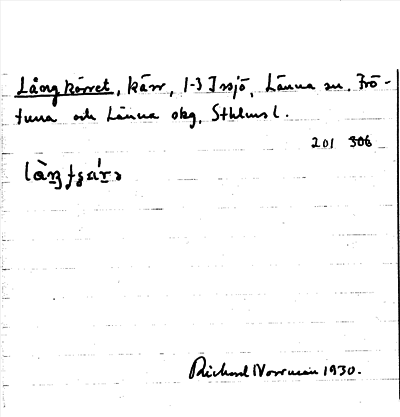 Långkärret, kärr, 1-3 Issjö, Länna sn, Frö-
tuna och Länna skg, Sthlms l.
201 306
Richard Norrman 1930.